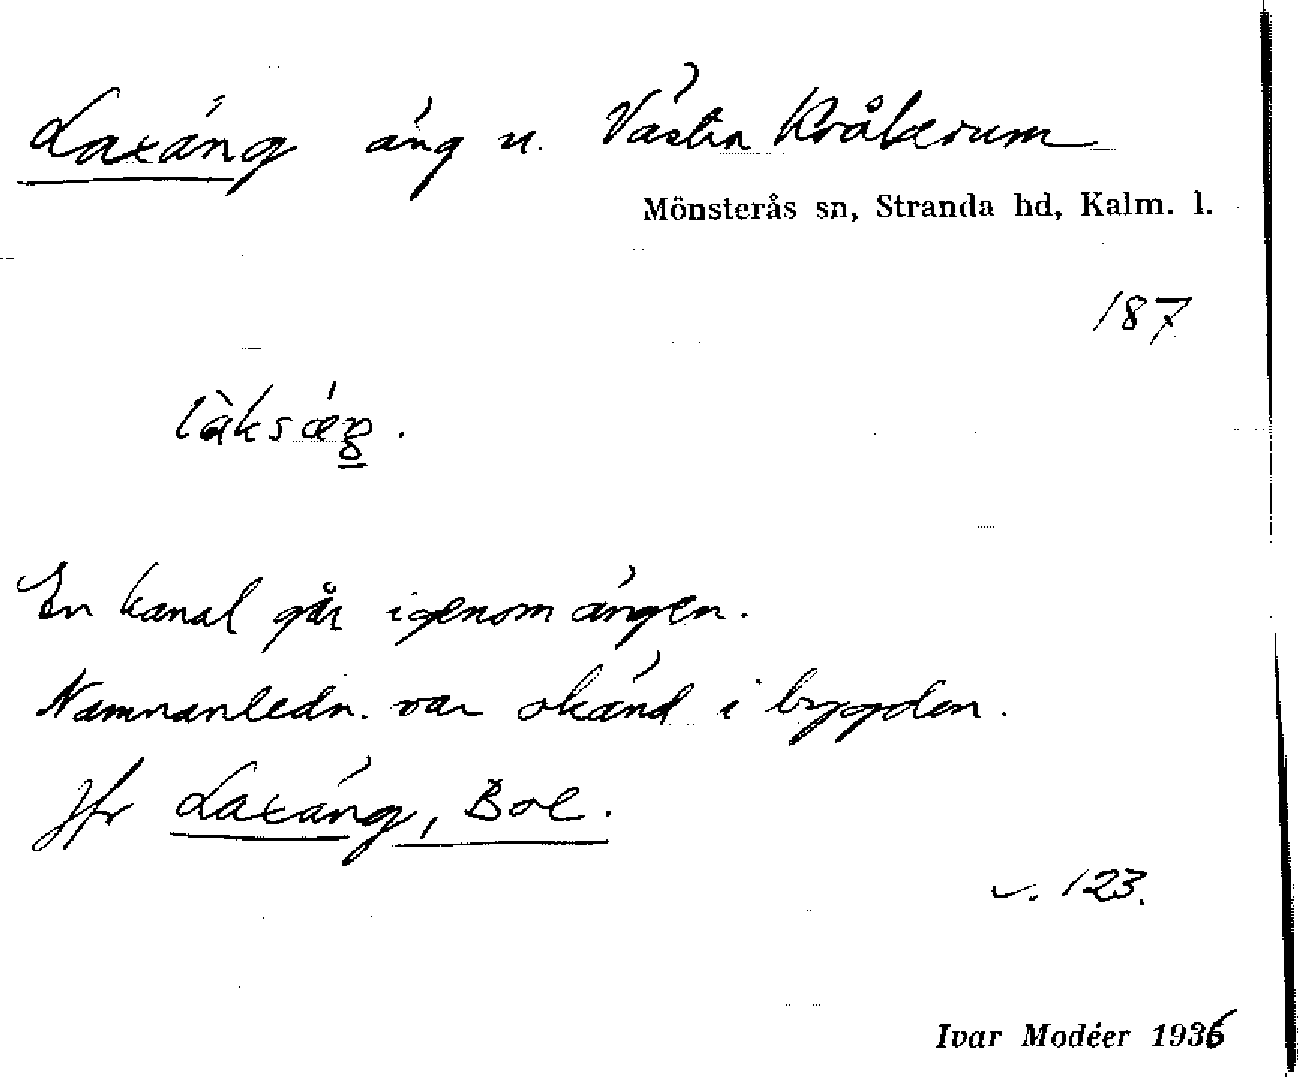 Laxäng äng u. Västra Kråkerum
Mönsterås sn, Stranda hd, Kalm. l.
187
làksæŋ.
En kanal går igenom ängen.
Namnanledn. var okänd i bygden.
Jfr Laxäng, Boe.
v. 123.
Ivar Modéer 1936